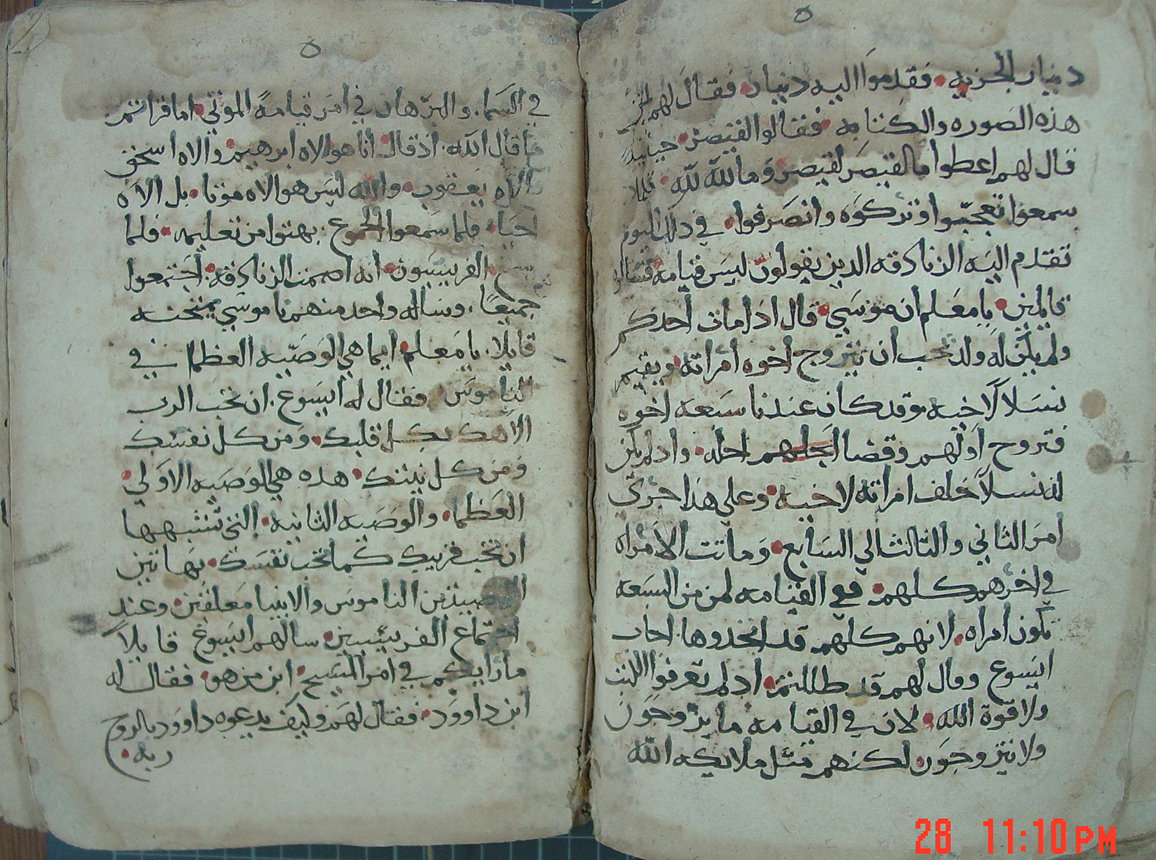 دينار الجزيه فقدموا اليه دينار فقال لهم لمن
هذه الصوره والكتابه فقالوا لقيصر حينيذ
قال لهم اعطوا ما لقيصر لقيصر وما لله لله فلما
سمعوا تعجبوا وتركوه وانصرفوا في ذلك اليوم
تقدم اليه الزنادقه الدين يقولون ليس قيامه فسالوه
قايلين يا معلم ان موسي قال ادا مات احدكم
ولم يكن له ولد يجب ان يتزوج اخوه امراته ويقيم
نسلاً لاخيه وقد كان عندنا سبعه اخوه
فتزوج اولهم وقضا اجله وادلم يكن
له نسلاً خلف امراته لاخيه وعلي هدا جري
امر الثاني والتالت الي السابع وماتت الامراه
في اخرهم كلهم ففي القيامه لمن من السبعه
تكون امراه لانهم كلهم قد اتخدوها اجاب
ايسوع وقال لهم قد ظللتم اد لم تعرفوا الكتب
ولا قوة الله لان في القيامه ما يزوجون
ولا يتزوجون لكنهم متل ملايكه الله
في السما والبرهان في امر قيامة الموتي اما قراتم
ما قال الله اد قال انا هو الاه ابرهيم والاه اسحق
والاه يعقوب والله ليس هو الاه موتا بل الاه
احيا فلما سمعوا الجموع بهتوا من تعليمه فلما
سمع الفريسيون انه اصمت الزنادقه اجتمعوا
جميعا وساله واحد منهم ناموسي يمتحنه
قايلا يا معلم ايما هي الوصيه العظما في
الناموس فقال له ايسوع ان تحب الرب
الاهك بكل قلبك ومن كل نفسك
ومن كل نيتك هده هي الوصيه الاولي
العظما والوصيه الثانيه التي تتشبهها
ان تحب قريبك كما تحب نفسك بهاتين
الوصيتين الناموس والانبيا معلقين وعند
اجتماع الفريسيين سالهم ايسوع قايلاً
ما رايكم في امر المسيح ابن من هو فقال له
ابن داوود فقال لهم وكيف يدعوه داوود بالروح
ربه
28 11:10PM